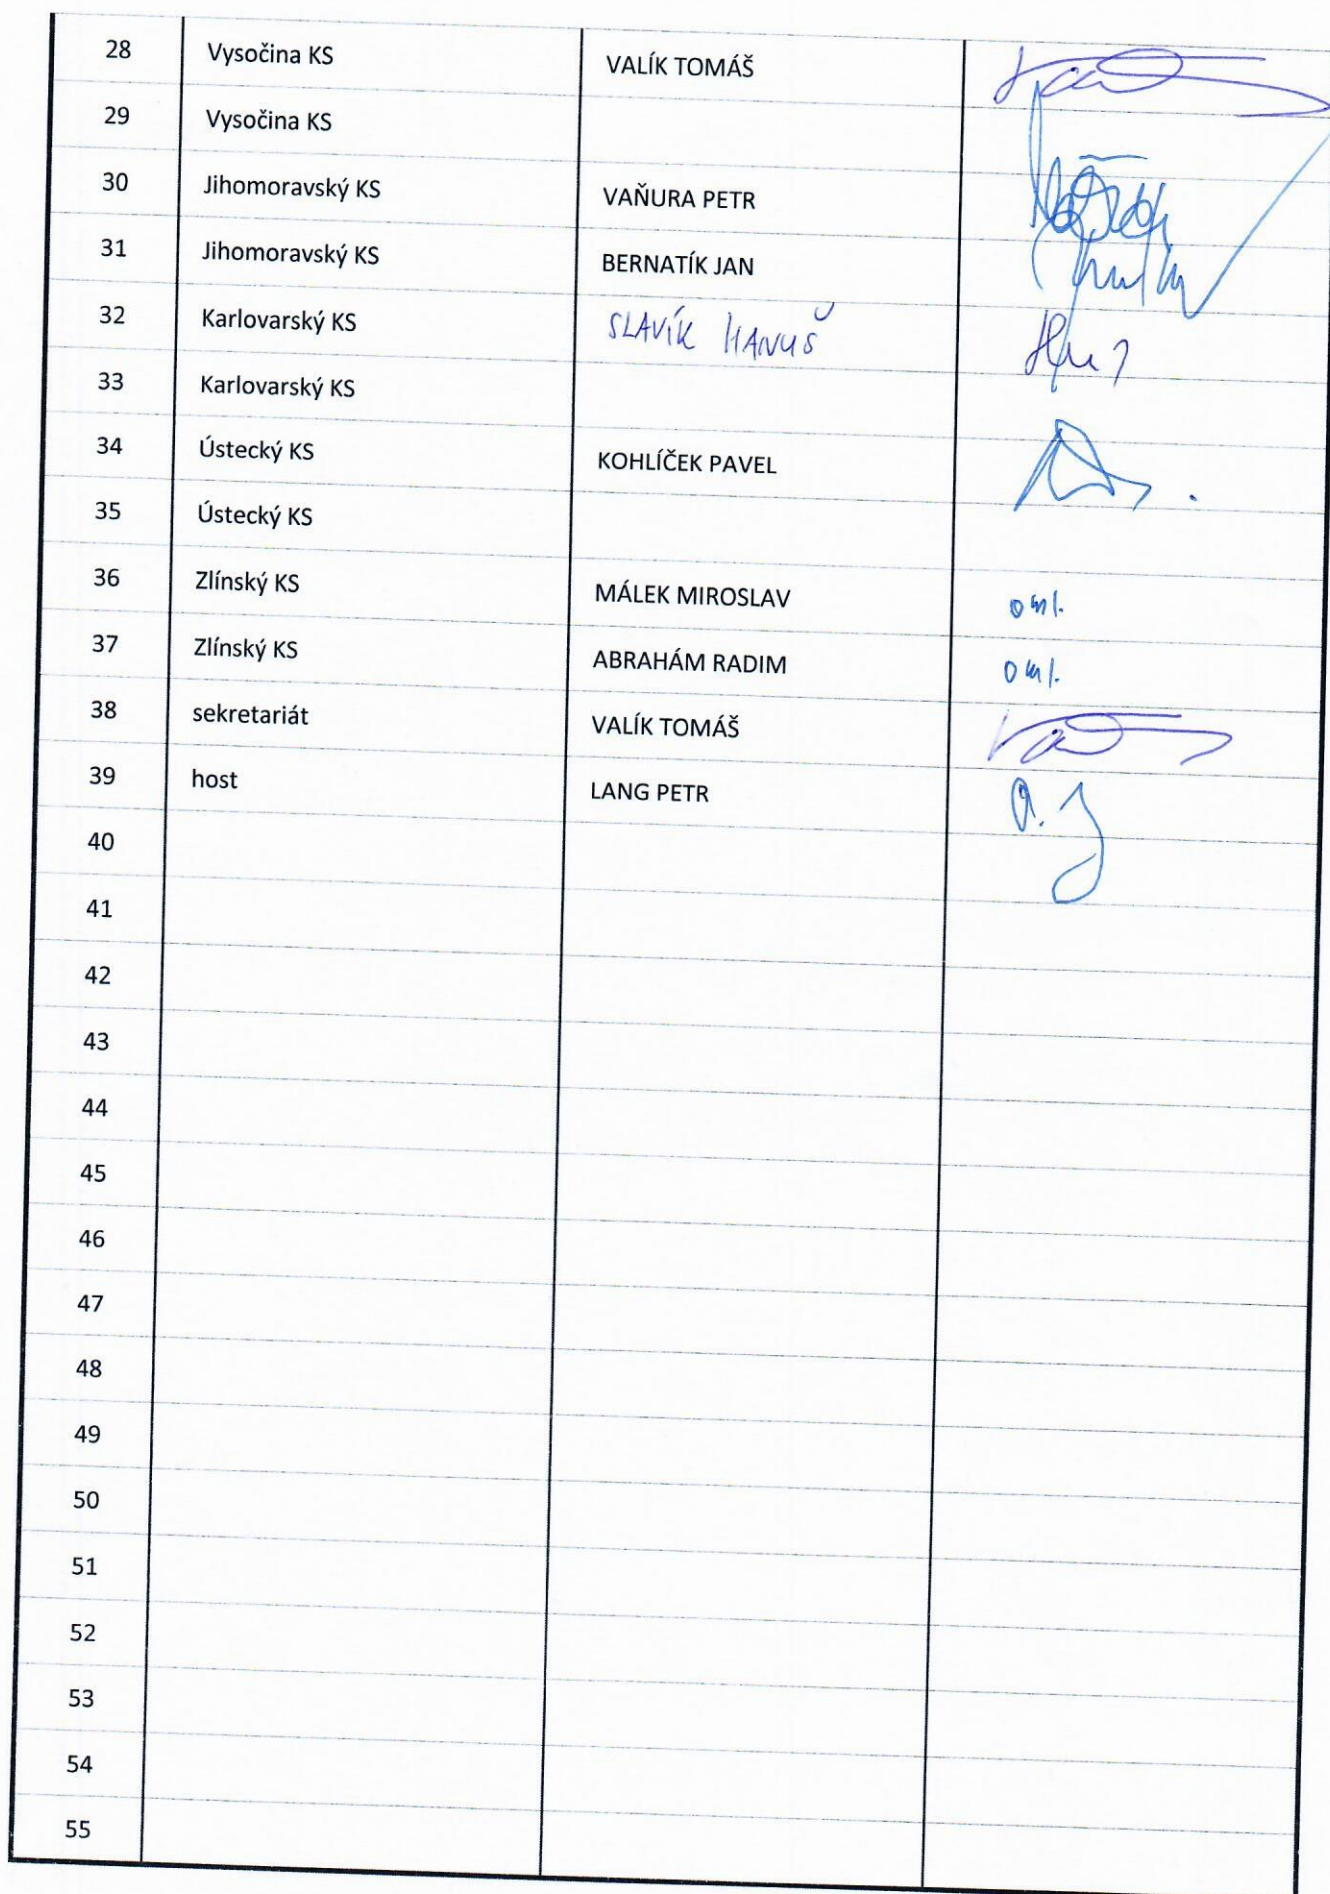 28 Vysočina KS VALÍK TOMÁŠ
29 Vysočina KS
30 Jihomoravský KS VAŇURA PETR
31 Jihomoravský KS BERNATÍK JAN
32 Karlovarský KS SLAVÍK HANUŠ
33 Karlovarský KS
34 Ústecký KS KOHLÍČEK PAVEL
35 Ústecký KS
36 Zlínský KS MÁLEK MIROSLAV oml.
37 Zlínský KS ABRAHÁM RADIM oml.
38 sekretariát VALÍK TOMÁŠ
39 host LANG PETR
40
41
42
43
44
45
46
47
48
49
50
51
52
53
54
55